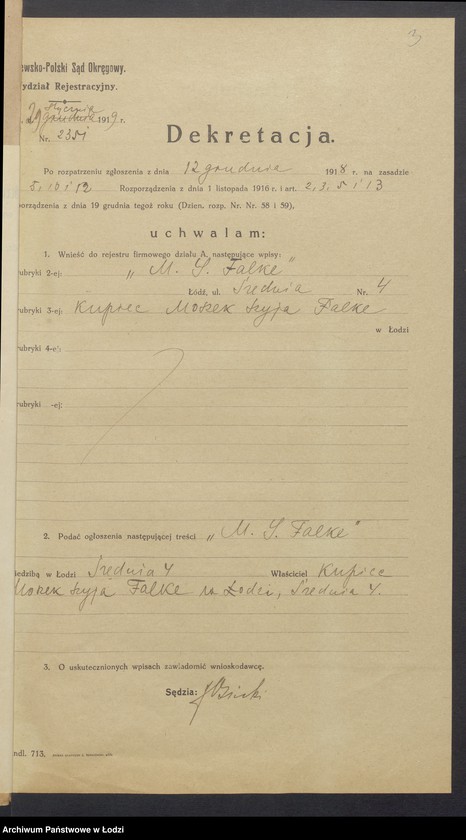 3
ewsko-Polski Sąd Okręgowy.
ydział Rejestracyjny.
stycznia
29 grudnia 1919 r.
Nr. 2351
Dekretacja.
Po rozpatrzeniu zgłoszenia z dnia 12 grudnia 1918 r. na zasadzie
5, 10 i 12 Rozporządzenia z dnia 1 listopada 1916 r. i art. 2, 3, 5 i 13
porządzenia z dnia 19 grudnia tegoż roku (Dzien. rozp. Nr. Nr. 58 i 59),
uchwalam:
1. Wnieść do rejestru firmowego działu A. następujące wpisy:
rubryki 2-ej: „M. S. Falke"
Łódź, ul. Średnia Nr. 4
rubryki 3-ej: Kupiec Moszek Szyja Falke
w Łodzi
rubryki 4-ej:
rubryki -ej:
2. Podać ogłoszenia następującej treści „M. S. Falke"
iedzibą w Łodzi Średnia 4 Właściciel Kupiec
Moszek Szyja Falke w Łodzi, Średnia 4.
3. O uskutecznionych wpisach zawiadomić wnioskodawcę.
Sędzia:
ndl. 713.
Archiwum Państwowe w Łodzi